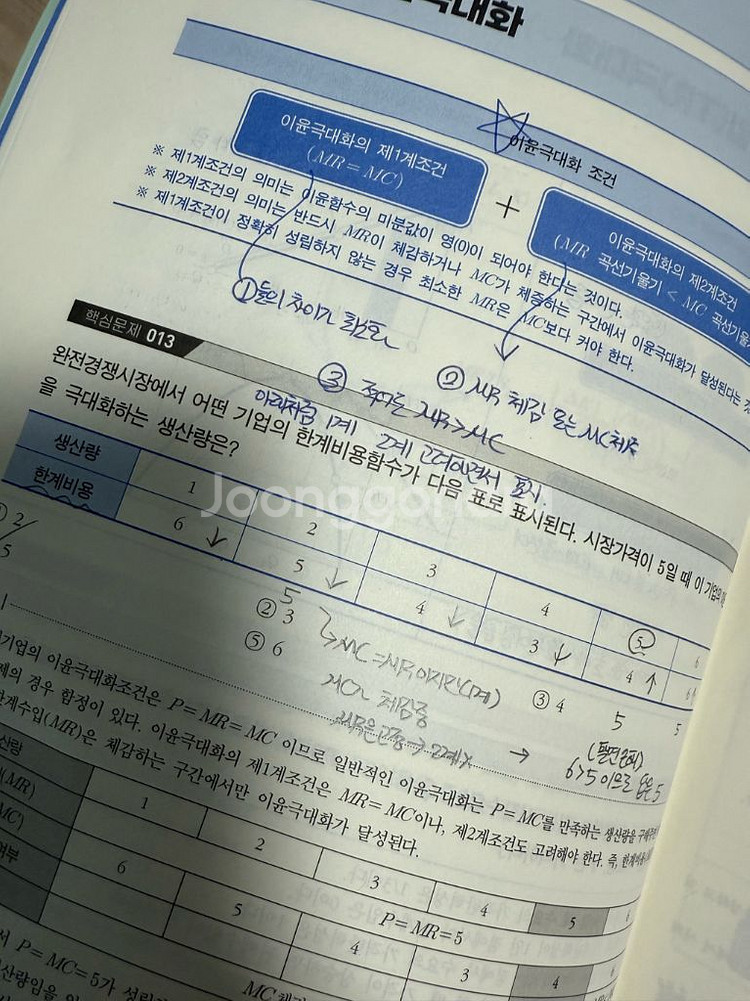 극대화
이윤극대화 조건
이윤극대화의 제1계조건
(MR = MC)
+
이윤극대화의 제2계조건
(MR 곡선기울기 < MC 곡선기울기
※ 제1계조건의 의미는 이윤함수의 미분값이 영(0)이 되어야 한다는 것이다.
※ 제2계조건의 의미는 반드시 MR이 체감하거나 MC가 체증하는 구간에서 이윤극대화가 달성된다는 것
※ 제1계조건이 정확히 성립하지 않는 경우 최소한 MR은 MC보다 커야 한다.
① 둘의 차이가
② MR 체감 또는 MC체증
③ 적어도 MR > MC
핵심문제 013
아래처럼 1계 2계 고려하면서 표시
완전경쟁시장에서 어떤 기업의 한계비용함수가 다음 표로 표시된다. 시장가격이 5일 때 이 기업의
을 극대화하는 생산량은?
생산량 1 2 3 4 5 6
한계비용 6 ↓ 5 ↓ 4 ↓ 3 ↓ 4 ↑ 6
Joonggon
① 2
② 3
③ 4
5
⑤ 6
5
→ MC = MR이지만(1계)
MC가 체감중
MR은 고정 → 2계 x
→
5
5
6>5이므로 답은 5
기업의 이윤극대화조건은 P = MR = MC 이므로 일반적인 이윤극대화는 P = MC를 만족하는 생산량을
제의 경우 함정이 있다. 이윤극대화의 제1계조건은 MR = MC이나, 제2계조건도 고려해야 한다. 즉,
한계수입(MR)은 체감하는 구간에서만 이윤극대화가 달성된다.
산량 1 2 3 4 5 6
(MR) P = MR = 5
MC) 6 5 4 3 4
여부 MC 체감
서 P = MC = 5가 성립